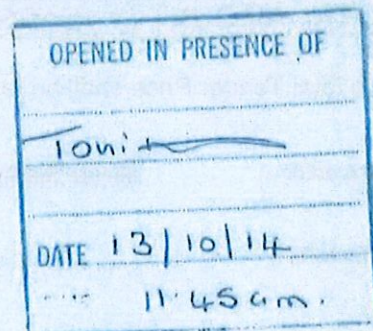 OPENED IN PRESENCE OF
Toni
DATE 13/10/14
11.45am.